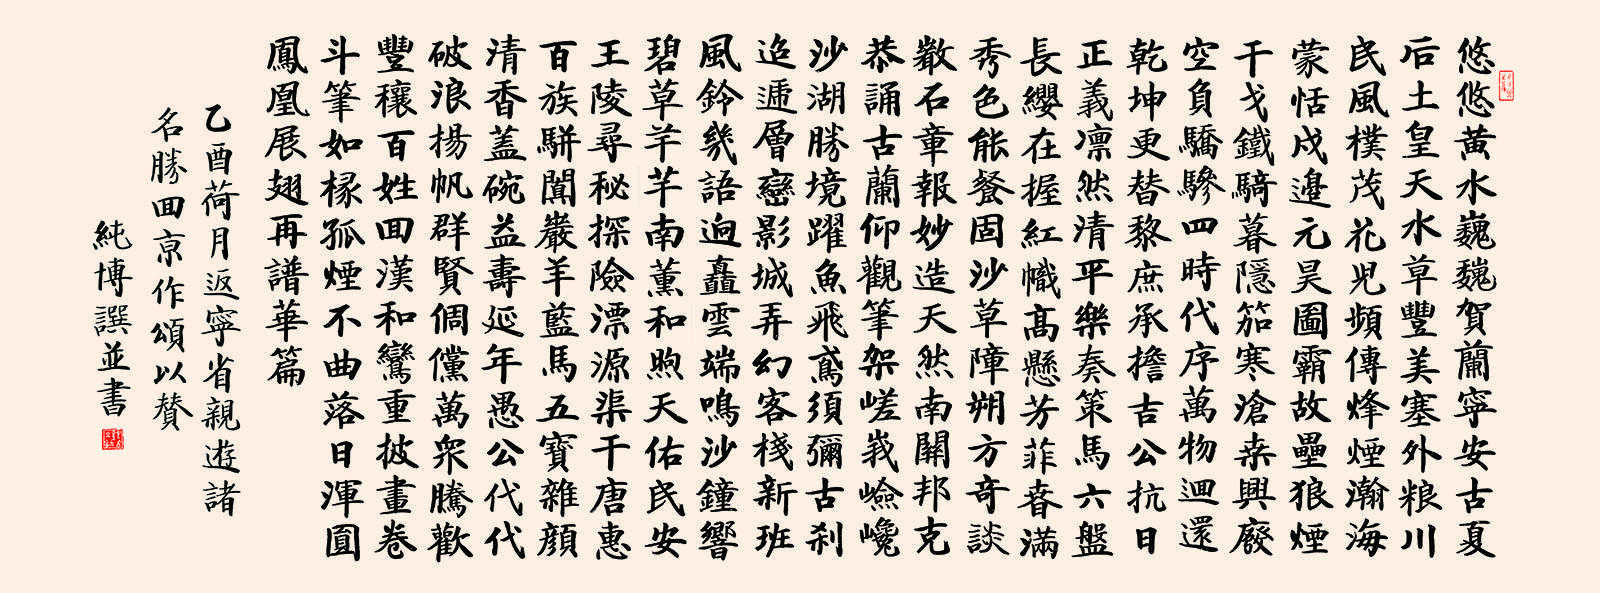 悠悠黄水巍巍賀蘭寧安古夏
后土皇天水草豐美塞外粮川
民風樸茂花児頻傳烽煙瀚海
蒙恬戍邊元昊圖霸故壘狼煙
干戈鐵騎暮隱笳寒滄桒興廢
空負驕驂四時代序萬物迴還
乾坤更替黎庶承擔吉公抗日
正義凛然清平樂奏策馬六盤
長纓在握紅幟高懸芳菲春滿
秀色能餐固沙草障朔方奇談
散石章報妙造天然南關邦克
恭誦古蘭仰觀筆架嵯峩嶮巉
沙湖勝境躍魚飛鳶須彌古刹
迤逦層巒影城弄幻客棧新班
風鈴幾語逈矗雲端鳴沙鐘響
碧草芊芊南薰和煦天佑民安
王陵尋秘探險漂源渠干唐惠
百族駢闐巖羊藍馬五寶雜顔
清香蓋碗益壽延年愚公代代
破浪揚帆群賢倜儻萬衆騰歡
豐穰百姓回漢和鸞重披畫卷
斗筆如椽孤煙不曲落日渾圓
鳳凰展翅再譜華篇
乙酉荷月返寧省親遊諸
名勝回京作頌以贊
純博譔並書